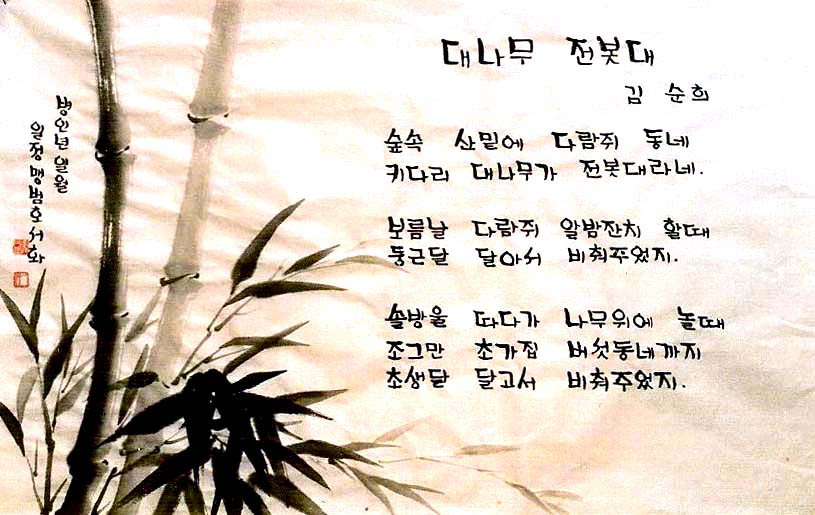 대나무 전봇대
김 순희
숲속 산밑에 다람쥐 동네
키다리 대나무가 전봇대라네.
보름날 다람쥐 알밤잔치 할때
둥근달 달아서 비춰주었지.
솔방울 따다가 나무위에 놀때
조그만 초가집 버섯동네까지
초생달 달고서 비춰주었지.
병인년 열월
일정 맹범호 서화